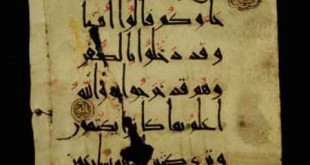 جاوكم قالوا امنا
وقد دخلوا بالكفر
وهم قد خرجوا به والله
اعلم بما كانوا يكتمون
وترى كثيرا